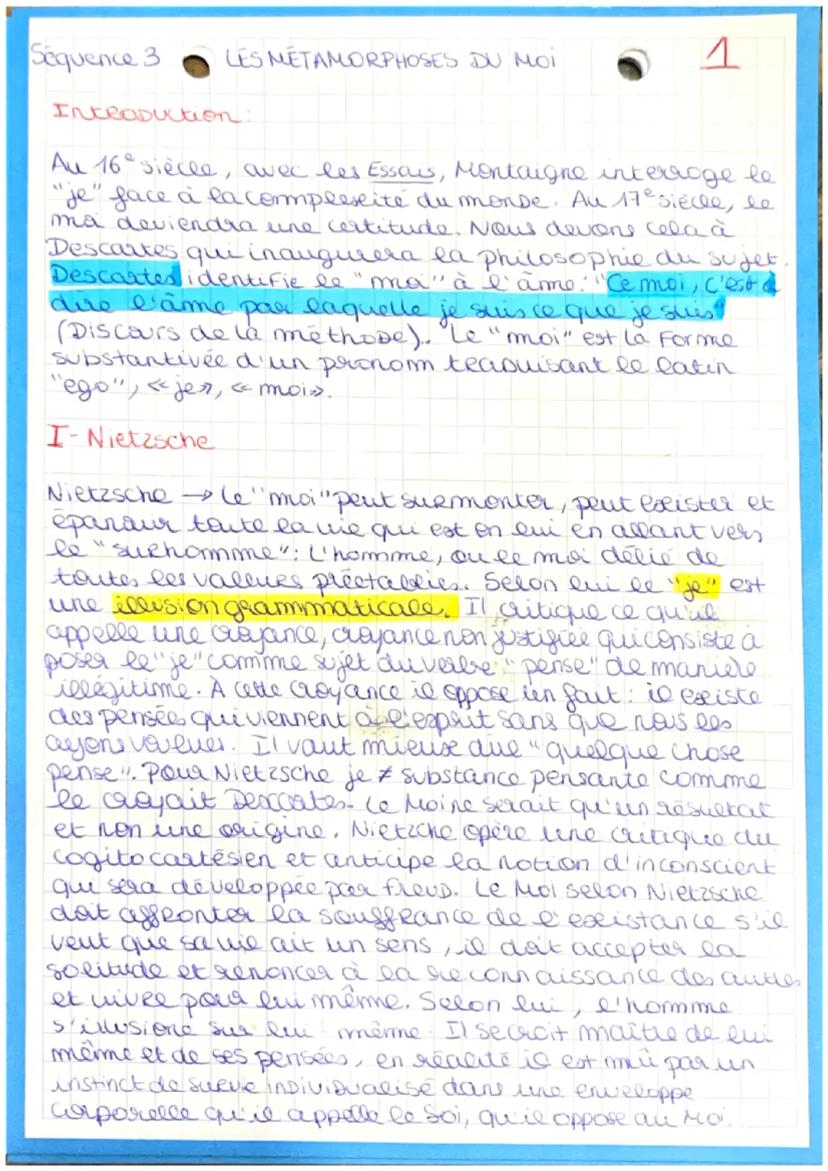 Séquence 3 LES MÉTAMORPHOSES DU MOI 1
Introduction:
Au 16e siècle, avec les Essais, Montaigne interroge le
"je" face à la complexité du monde. Au 17e siècle, le
moi deviendra une certitude. Nous devons cela à
Descartes qui inaugurera la philosophie du sujet.
Descartes identifie le "moi" à l'âme: "Ce moi, c'est à
dire l'âme par laquelle je suis ce que je suis"
(Discours de la méthode). Le "moi" est la forme
substantivée d'un pronom traduisant le latin
"ego", «je», «moi».
I- Nietzsche
Nietzsche → Le "moi" peut surmonter, peut exister et
épanouir toute la vie qui est en lui en allant vers
le "surhomme": L'homme, ou le moi délié de
toutes les valeurs préétablies. Selon lui le "je" est
une illusion grammaticale. Il critique ce qu'il
appelle une croyance, croyance non justifiée qui consiste à
poser le "je" comme sujet du verbe "pense" de manière
illégitime. À cette croyance il oppose un fait: il existe
des pensées qui viennent à l'esprit sans que nous les
ayons voulues. Il vaut mieux dire "quelque chose
pense". Pour Nietzsche je ≠ substance pensante comme
le croyait Descartes. Le Moi ne serait qu'un résultat
et non une origine. Nietzche opère une critique du
cogito cartésien et anticipe la notion d'inconscient
qui sera développée par Freud. Le Moi selon Nietzsche
doit affronter la souffrance de l'existance s'il
veut que sa vie ait un sens, il doit accepter la
solitude et renoncer à la reconnaissance des autres
et vivre pour lui même. Selon lui, l'homme
s'illusione sur lui même. Il se croit maître de lui
même et de ses pensées, en réalité il est mû par un
instinct de survie individualisé dans une enveloppe
corporelle qu'il appelle le Soi, qu'il oppose au Moi.